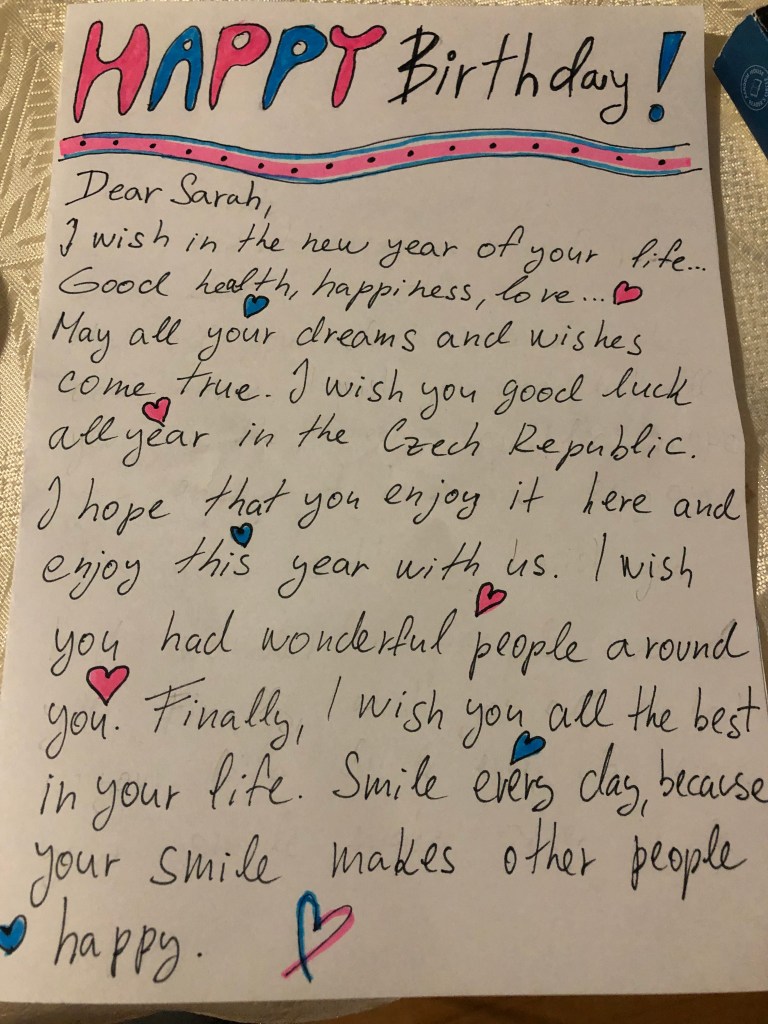 HAPPY Birthday!
Dear Sarah,
I wish in the new year of your life...
Good health, happiness, love...
May all your dreams and wishes
come true. I wish you good luck
all year in the Czech Republic.
I hope that you enjoy it here and
enjoy this year with us. I wish
you had wonderful people around
you. Finally, I wish you all the best
in your life. Smile every day, because
your smile makes other people
happy.